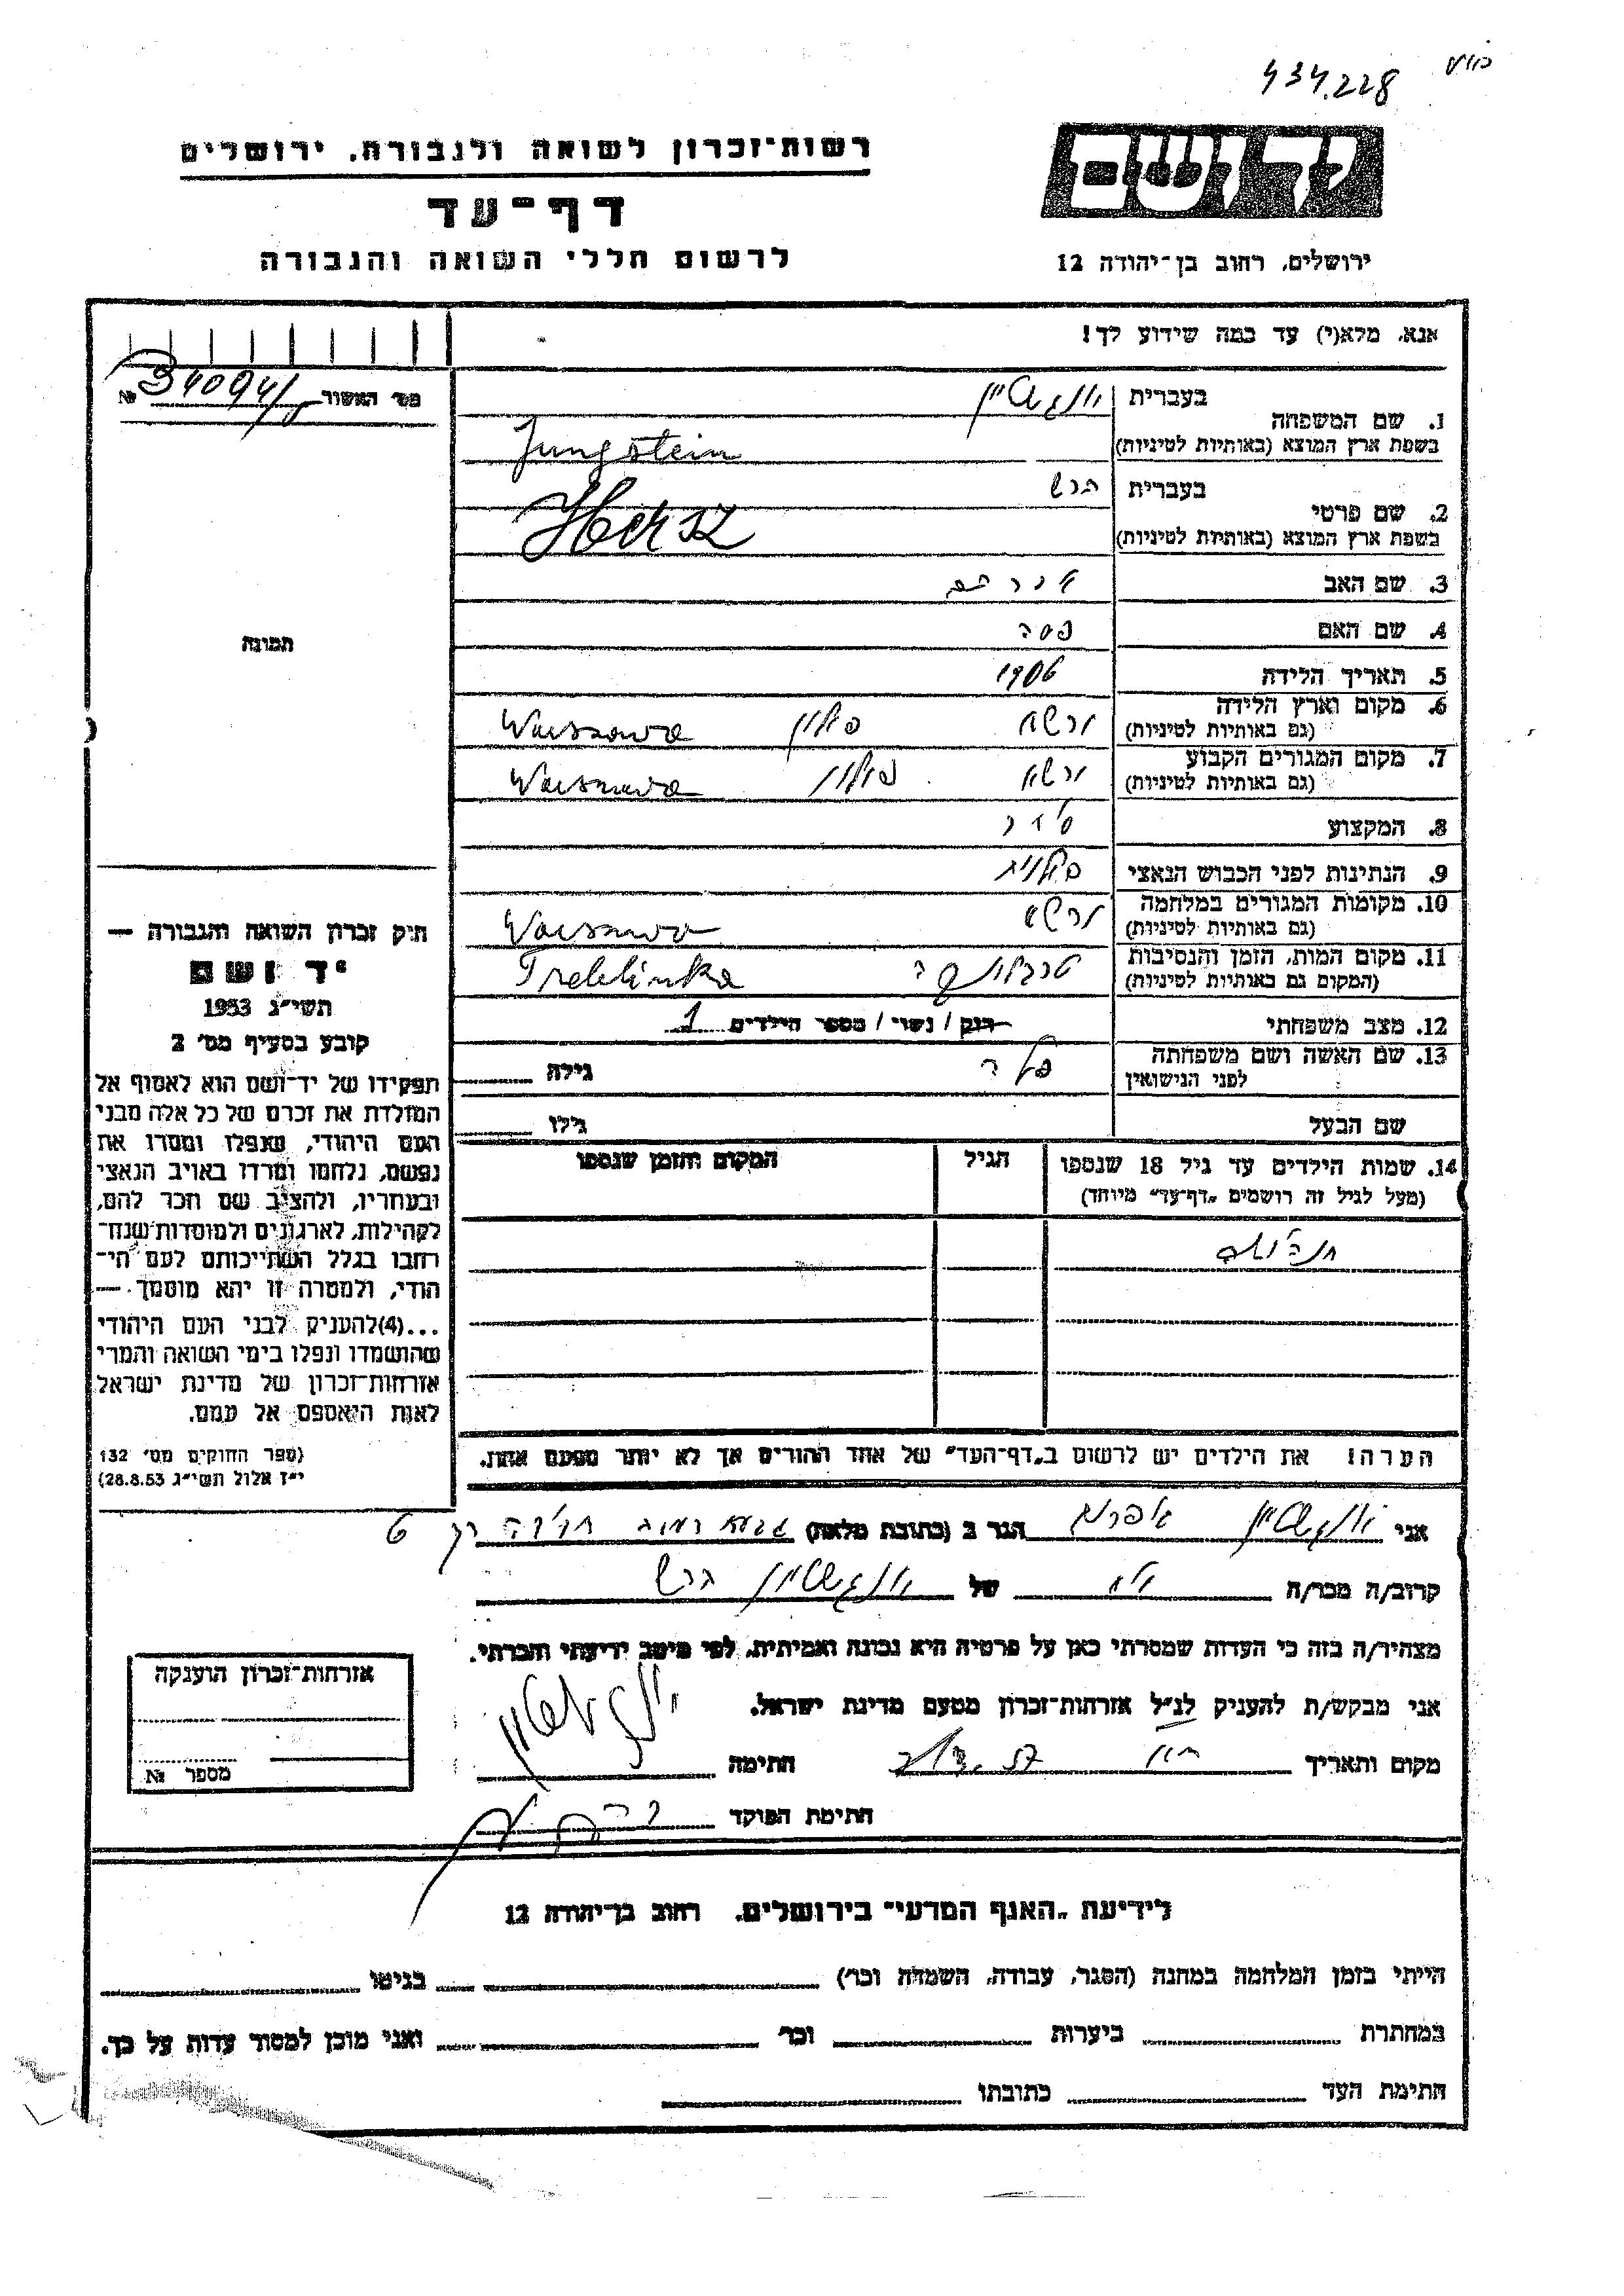 434.228
רשות-זכרון לשואה ולגבורה. ירושלים
יד ושם
דף-עד
לרשום חללי השואה והגבורה
ירושלים, רחוב בן-יהודה 12
אנא, מלא(י) עד כמה שידוע לך!
מס' האשור № 34094/
1. שם המשפחה
בעברית יונגשטיין
בשפת ארץ המוצא (באותיות לטיניות) Jungstein
2. שם פרטי
בעברית הרש
בשפת ארץ המוצא (באותיות לטיניות) Hersz
3. שם האב אברהם
4. שם האם פסה
5. תאריך הלידה 1906
6. מקום וארץ הלידה ורשא פולין Warszawa
(גם באותיות לטיניות)
7. מקום המגורים הקבוע ורשא פולין Warszawa
(גם באותיות לטיניות)
8. המקצוע
9. הנתינות לפני הכבוש הנאצי פולנית
10. מקומות המגורים במלחמה ורשא Warszawa
(גם באותיות לטיניות)
11. מקום המות, הזמן והנסיבות טרבלינקה Treblinka
(המקום גם באותיות לטיניות)
12. מצב משפחתי רוק / נשוי / מספר הילדים 1
13. שם האשה ושם משפחתה
לפני הנישואין גילה
שם הבעל גילו
14. שמות הילדים עד גיל 18 שנספו
(מעל לגיל זה רושמים "דף-עד" מיוחד)
הגיל
המקום והזמן שנספו
הערה! את הילדים יש לרשום ב"דף-העד" של אחד ההורים אך לא יותר מפעם אחת.
תמונה
חיק זכרון השואה והגבורה —
יד ושם
תשי"ג 1953
קובע בסעיף מס' 2
תפקידו של יד-ושם הוא לאסוף אל
המולדת את זכרם של כל אלה מבני
העם היהודי, שנפלו ומסרו את
נפשם, נלחמו ומרדו באויב הנאצי
ובעוזריו, ולהציב שם וזכר להם,
לקהילות, לארגונים ולמוסדות שנח-
רבו בגלל השתייכותם לעם הי-
הודי, ולמטרה זו יהא מוסמך —
...(4)להעניק לבני העם היהודי
שהושמדו ונפלו בימי השואה והמרי
אזרחות-זכרון של מדינת ישראל
לאות היאספם אל עמם.
(ספר החוקים מס' 132
י"ז אלול תשי"ג 28.8.53)
אני יונגשטיין אפרים הגר ב (כתובת מלאה)
קרוב/ה מכר/ה של יונגשטיין הרש
מצהיר/ה בזה כי העדות שמסרתי כאן על פרטיה היא נכונה ואמיתית, לפי מיטב ידיעתי והכרתי.
אני מבקש/ת להעניק לנ"ל אזרחות-זכרון מטעם מדינת ישראל.
מקום ותאריך חתימה יונגשטיין
חתימת הפוקד
אזרחות-זכרון הוענקה
מספר №
לידיעת "האגף המדעי" בירושלים. רחוב בן-יהודה 12
הייתי בזמן המלחמה במחנה (הסגר, עבודה, השמדה וכר') בגיטו
במחתרת ביערות וכר' ואני מוכן למסור עדות על כך.
חתימת העד כתובתו